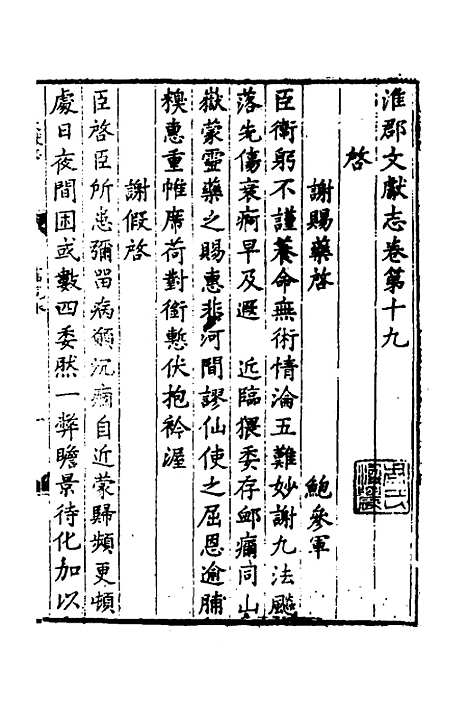 淮郡文獻志卷第十九
啓
謝賜藥啓 鮑參軍
臣衛躬不謹養命無術情淪五難妙謝九法飈
落先傷衰痾早及遐 近臨猥委存卹痛同山
嶽蒙靈藥之賜惠非河間謬仙使之屈恩逾脯
糗惠重帷席荷對銜慙伏抱衿渥
謝假啓
臣啓臣所患彌留病願沉痼自近蒙歸頻更頓
處日夜間困或數四委然一弊瞻景待化加以